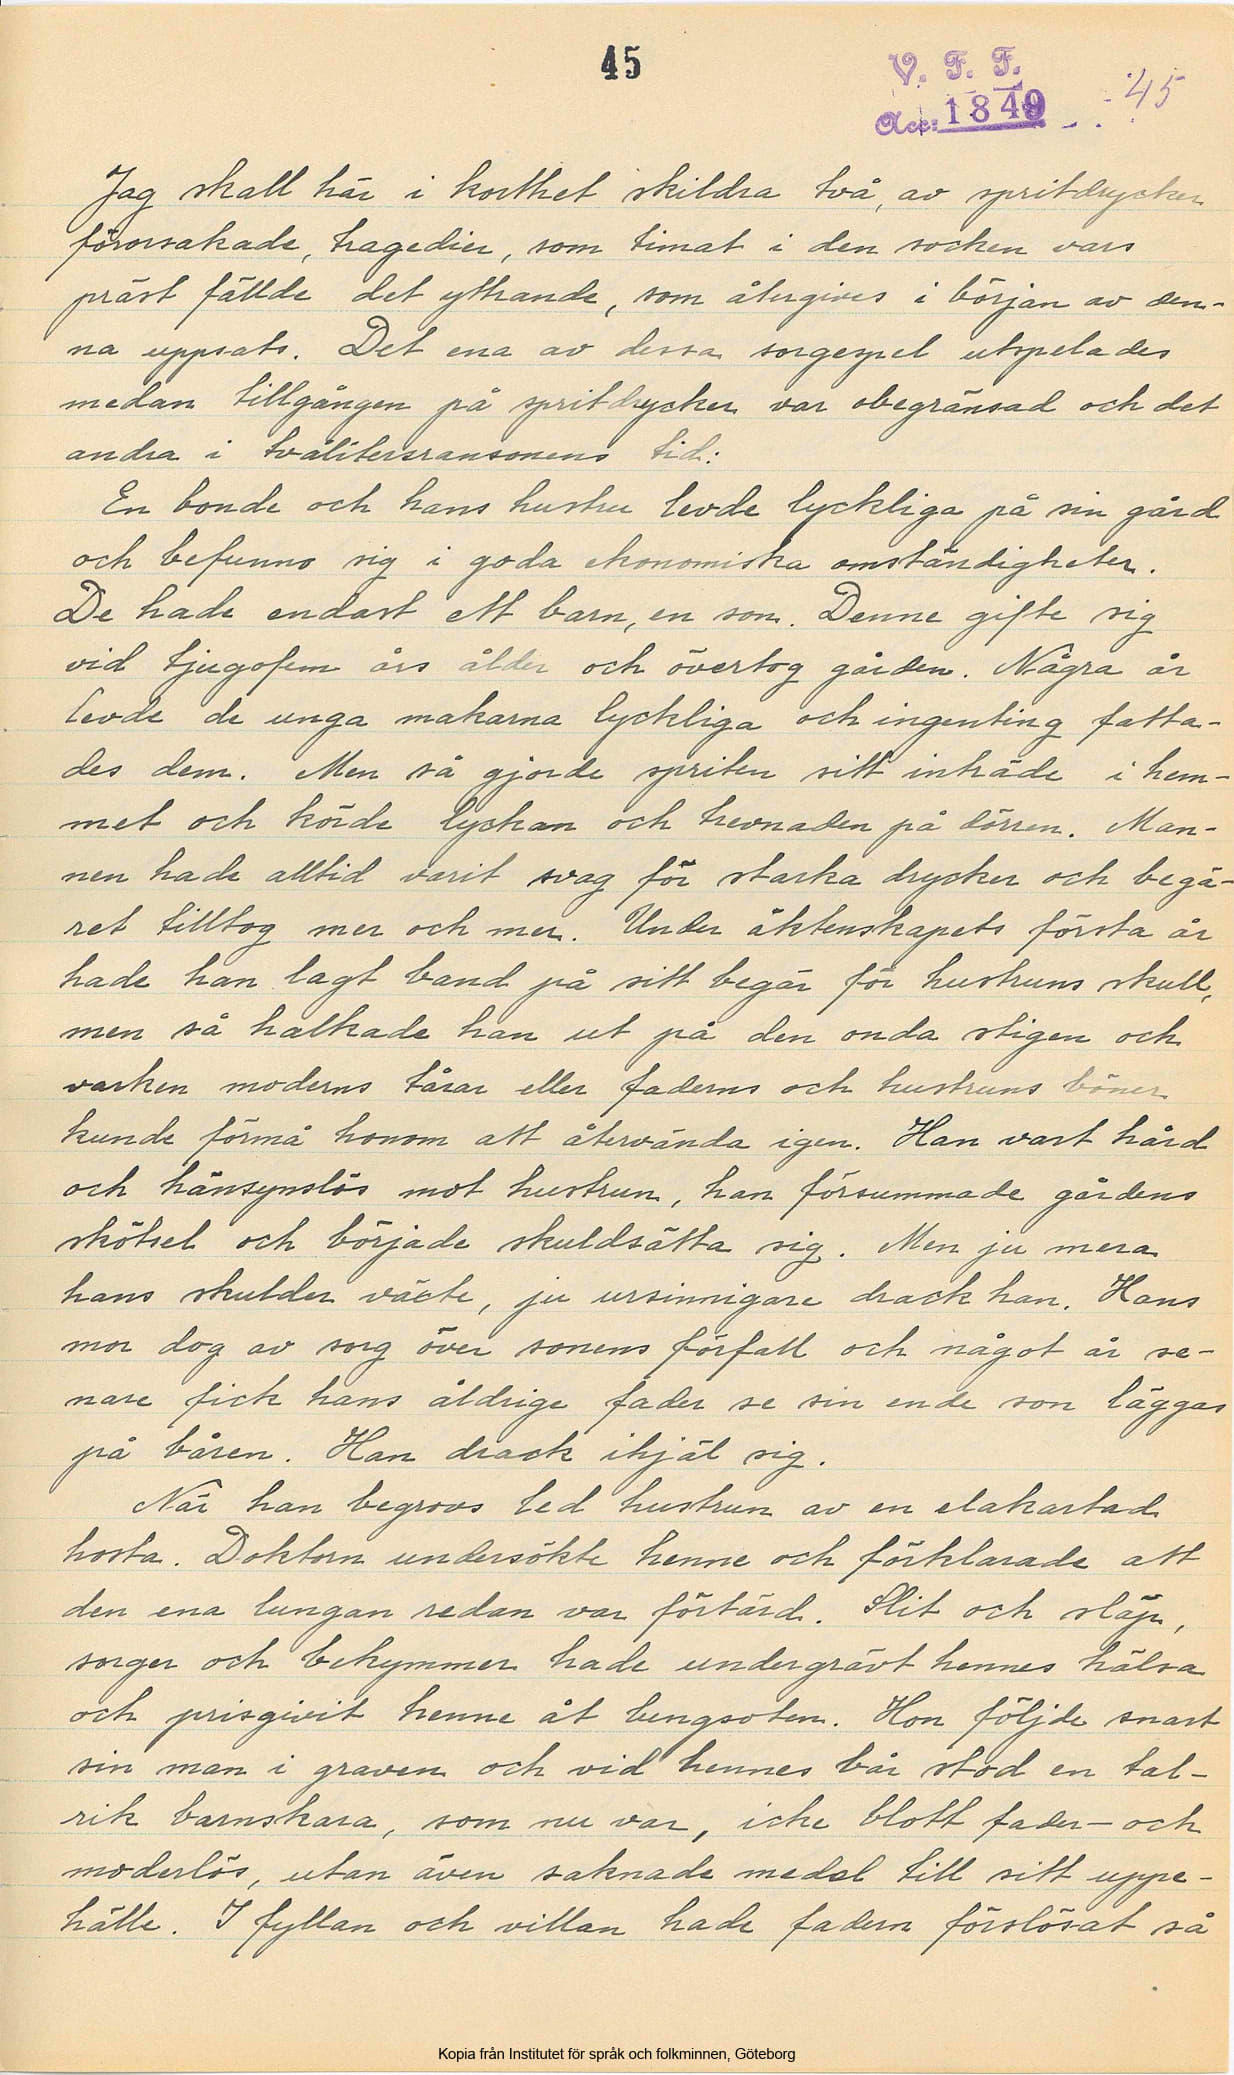 45
V. F. F.
45
Acc: 1849
Jag skall här i korthet skildra två, av spritdrycker
förorsakade, tragedier, som timat i den socken vars
präst fällde det yttrande, som återgives i början av den-
na uppsats. Det ena av dessa sorgespel utspelades
medan tillgången på spritdrycker var obegränsad och det
andra i tvålitersransonens tid:
En bonde och hans hustru levde lyckliga på sin gård
och befunno sig i goda ekonomiska omständigheter.
De hade endast ett barn, en son. Denne gifte sig
vid tjugofem års ålder och övertog gården. Några år
levde de unga makarna lyckliga och ingenting fatta-
des dem. Men så gjorde spriten sitt inträde i hem-
met och körde lyckan och trevnaden på dörren. Man-
nen hade alltid varit svag för starka drycker och begä-
ret tilltog mer och mer. Under äktenskapets första år
hade han lagt band på sitt begär för hustruns skull,
men så halkade han ut på den onda stigen och
varken moderns tårar eller faderns och hustruns böner
kunde förmå honom att återvända igen. Han vart hård
och hänsynslös mot hustrun, han försummade gårdens
skötsel och började skuldsätta sig. Men ju mera
hans skulder växte, ju ursinnigare drack han. Hans
mor dog av sorg över sonens förfall och något år se-
nare fick hans åldrige fader se sin ende son läggas
på båren. Han drack ihjäl sig.
När han begrovs led hustrun av en elakartad
hosta. Doktorn undersökte henne och förklarade att
den ena lungan redan var förtärd. Slit och släp,
sorger och bekymmer hade undergrävt hennes hälsa
och prisgivit henne åt lungsoten. Hon följde snart
sin man i graven och vid hennes bår stod en tal-
rik barnskara, som nu var, icke blott fader- och
moderlös, utan även saknade medel till sitt uppe-
hälle. I fyllan och villan hade fadern förslösat så
Kopia från Institutet för språk och folkminnen, Göteborg